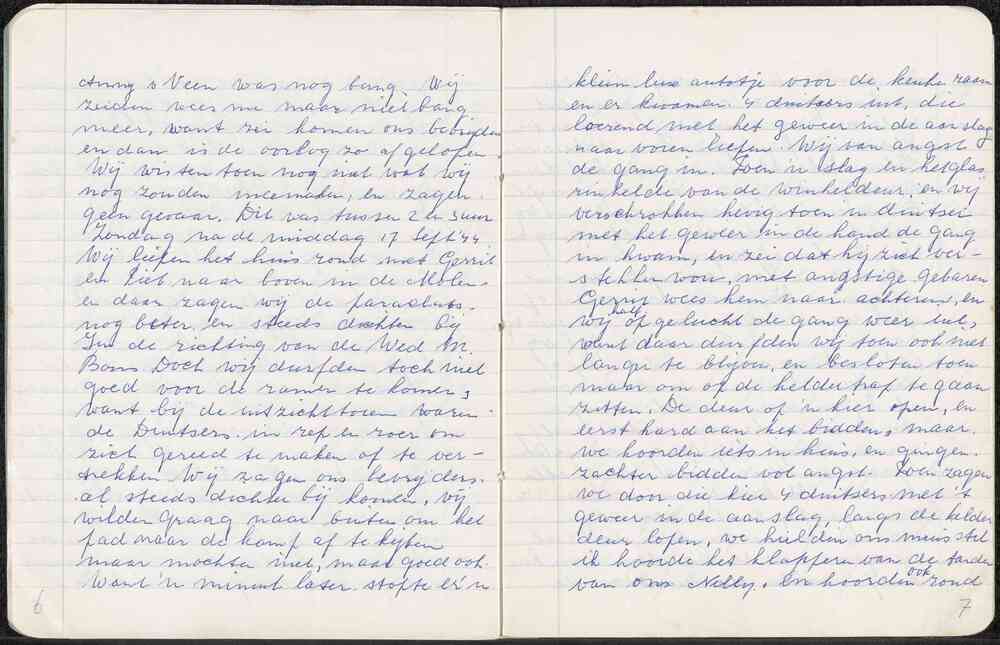 Anny v Veen was nog bang. Wij
zeiden wees nu maar niet bang
meer, want zei komen ons bevrijden
en dan is de oorlog zo afgelopen.
Wij wisten toen nog niet wat wij
nog zouden meemaken, en zagen
geen gevaar. Dit was tussen 2 en 3 uur
Zondag na de middag 17 Sept '44.
Wij liepen het huis rond met Gerrit
en Piet naar boven in de Molen
en daar zagen wij de parachuts.
nog beter, en steeds dichter bij
In de richting van de Wed M.
Bons Doch wij durfden toch niet
goed voor de ramen te komen,
want bij de uitzichttoren waren
de Duitsers in rep en roer om
zich gereed te maken of te ver-
trekken Wij zagen ons bevrijders.
al steeds dichter bij komen, wij
wilden graag naar buiten om het
pad naar de kamp af te kijken
maar mochten niet, maar goed ook.
Want 'n minuut later stopte er 'n
6
klein luxe autotje voor de keuke raam
en er kwamen 4 duitsers uit, die
loerend met het geweer in de aanslag
naar voren liepen. Wij van angst
de gang in. Toen 'n slag en het glas
rinkelde van de winkeldeur, en wij
verschrokken hevig toen 'n duitser
met het geweer in de hand de gang
in kwam, en zei dat hij zich ver-
stekken wou, met angstige gebaren
Gerrit wees hem naar achteren, en
wij half opgelucht de gang weer uit,
want daar durfden wij toen ook niet
langer te blijven, en besloten toen
maar om op de keldertrap te gaan
zitten. De deur op 'n kier open, en
eerst hard aan het bidden, maar.
we hoorden iets in huis, en gingen
zachter bidden vol angst. Toen zagen
we door die kier 4 duitsers met 't
geweer in de aanslag, langs de kelder
deur lopen, we hielden ons muisstil
ik hoorde het klapperen van de tanden
van ons Nelly. En hoorden ook rond
7